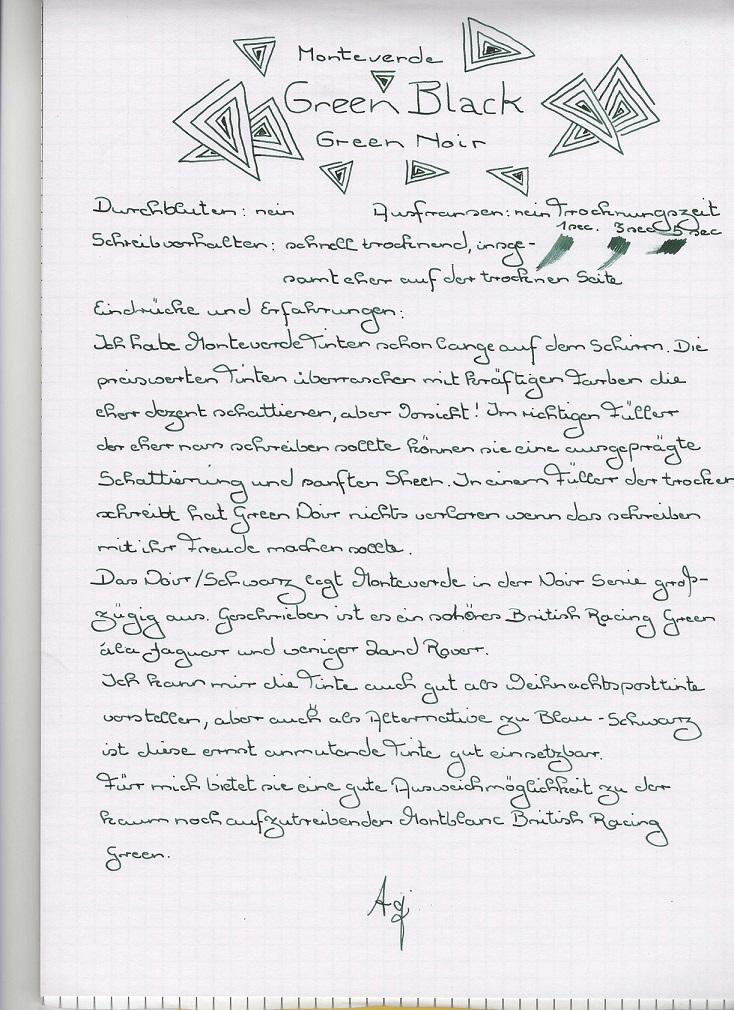 Monteverde
Green Black
Green Noir
Durchbluten: nein Ausfransen: nein Trocknungszeit
1sec. 3sec 5sec
Schreibverhalten: schnell trocknend, insge-
samt eher auf der trocknen Seite
Eindrücke und Erfahrungen:
Ich habe Monteverde Tinten schon lange auf dem Schirm. Die
preiswerten Tinten überraschen mit kräftigen Farben die
eher dezent schattieren, aber Vorsicht! Im richtigen Füller
der eher nass schreiben sollte können sie eine ausgeprägte
Schattierung und sanften Sheen. In einem Füller der trocken
schreibt hat Green Noir nichts verloren wenn das schreiben
mit ihr Freude machen sollte.
Das Noir/Schwarz legt Monteverde in der Noir Serie groß-
zügig aus. Geschrieben ist es ein schönes British Racing Green
ála Jaguar und weniger Land Rover.
Ich kann mir die Tinte auch gut als Weihnachtsposttinte
vorstellen, aber auch als Alternative zu Blau-Schwarz
ist diese ernst anmutende Tinte gut einsetzbar.
Für mich bietet sie eine gute Ausweichmöglichkeit zu der
kaum noch aufzutreibenden Montblanc British Racing
Green.